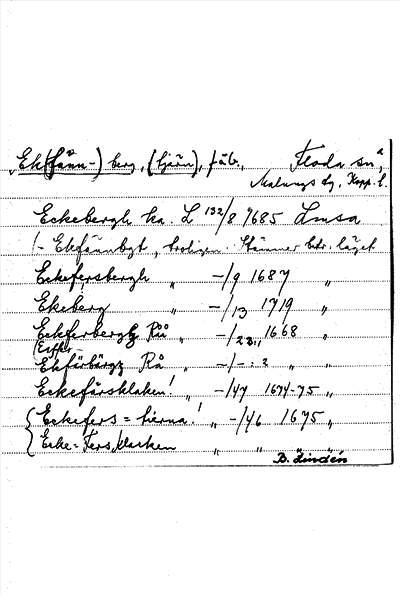 Ek(fänn-) berg, (tjärn), fäb., Floda sn,
Malungs tg, Kopp. l.
Eckebergh ha. L 132/8 1685 Lmsa
(- Ekfännbgt, troligen. Stämmer betr. läget
Eckefersbergh " -/9 1687 "
Ekeberg " -/13 1719 "
Eckferbergz Rå " -/23 1668 "
Ekfärbärgz Rå " -/- : 2 " "
Eckefärsklaken! " -/47 1674-75 "
Eckefers=tierna! " -/46 1675 "
Ecke=Fers klacken " " "
B. Lindén